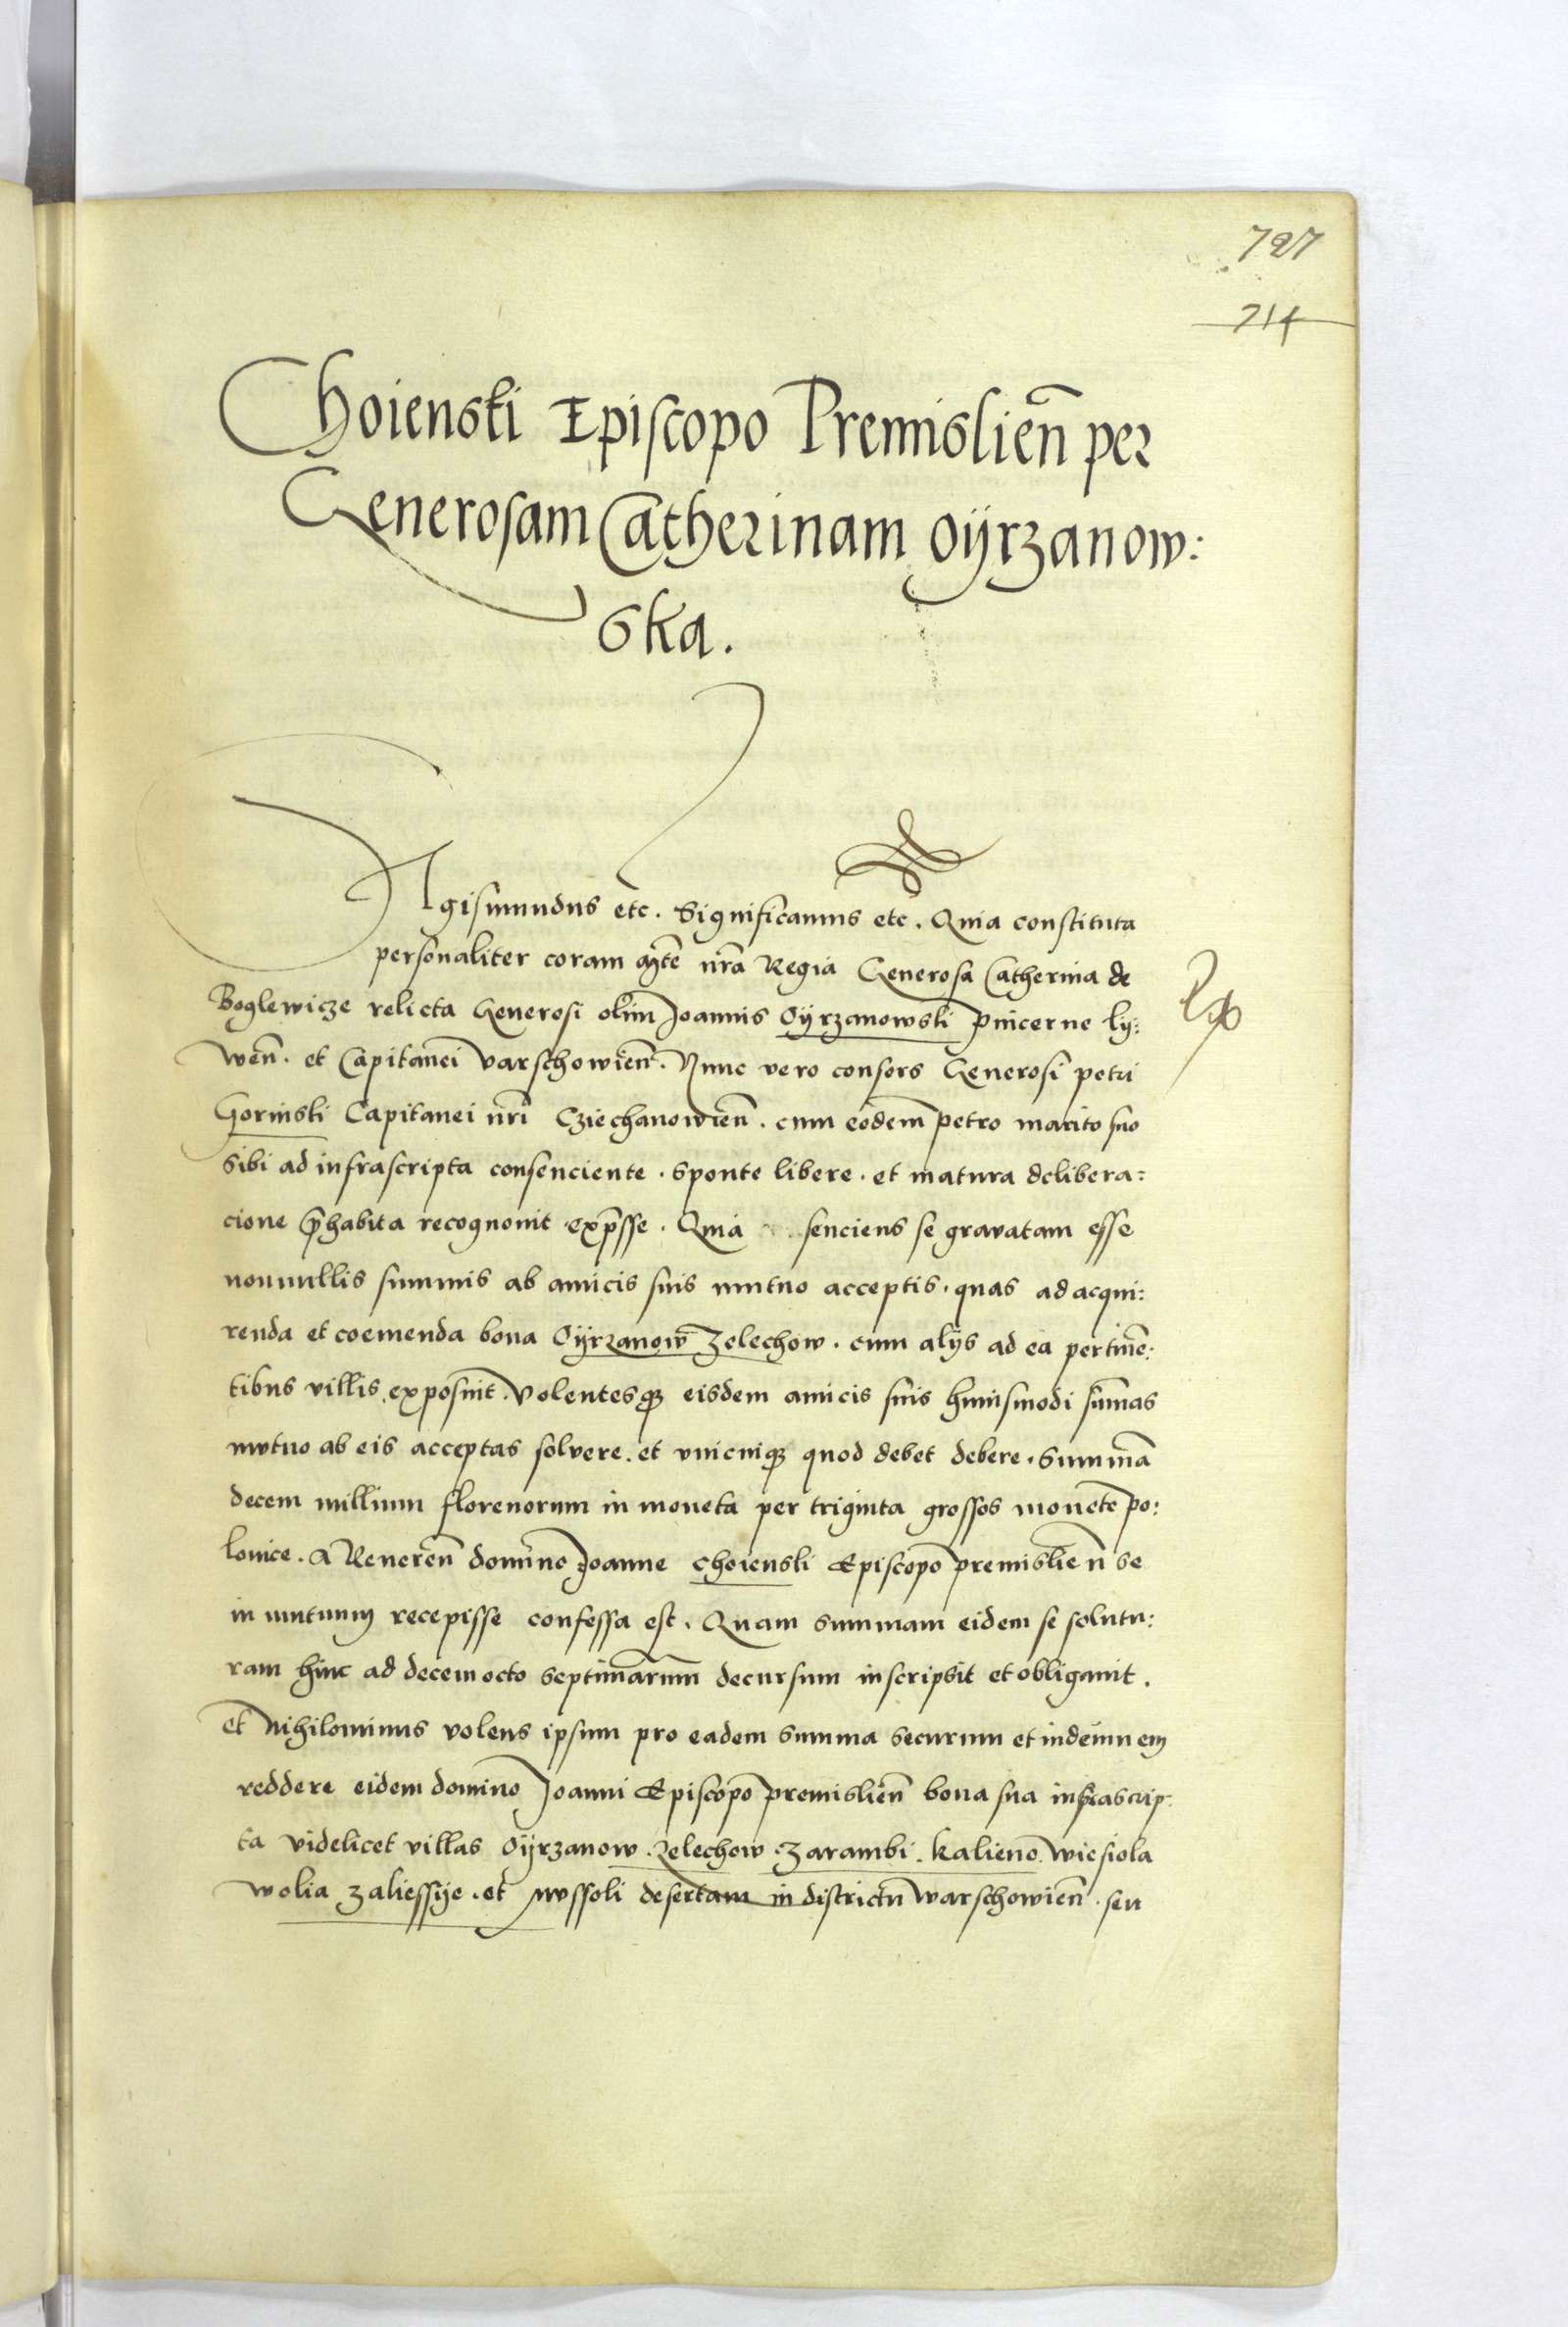 727
714
Choienski Episcopo Premislien̄ per
Generosam Catherinam Oÿrzanow:
ska.
Sigismundus etc. Significamus etc. Quia constituta
personaliter coram mt̄e nr̄a Regia Generosa Catherina de
Boglewicze relicta Generosi olim Joannis Oÿrzanowski pincerne lÿ:
wen̄. et Capitanei varschowien̄. Nunc vero consors Generosi petri
Gorinski Capitanei nr̄i Cziechanowien̄. cum eodem petro marito suo
sibi ad infrascripta consenciente. sponte libere. et matura delibera:
cione p̄habita recognouit exp̄sse. Quia senciens se gravatam esse
nonnullis summis ab amicis suis mutuo acceptis. quas ad acqui:
renda et coemenda bona Oÿrzanow Zelechow. cum alÿs ad ea pertinē:
tibus villis exposuit. Volentesq3 eisdem amicis suis huiusmodi sum̄as
mutuo ab eis acceptas solvere. et vnicuiq3 quod debet debere. Summā
decem millium florenorum in moneta per triginta grossos monete po:
lonice. A Reueren̄ domino Joanne Choienski Episcopo premislien̄ se
in mutuum recepisse confessa est. Quam summam eidem se solutu:
ram hinc ad decem octo septimanarum decursum inscripsit et obligauit.
et Nihilominus volens ipsum pro eadem summa securum et indemnem
reddere eidem domino Joanni Episcopo premislien̄ bona sua infrascrip:
ta videlicet villas Oÿrzanow. Zelechow. Zarambi. Kalieno. wiesiola
wolia zaliessÿe. et mussoli desertam in districtu warschowien̄. seu